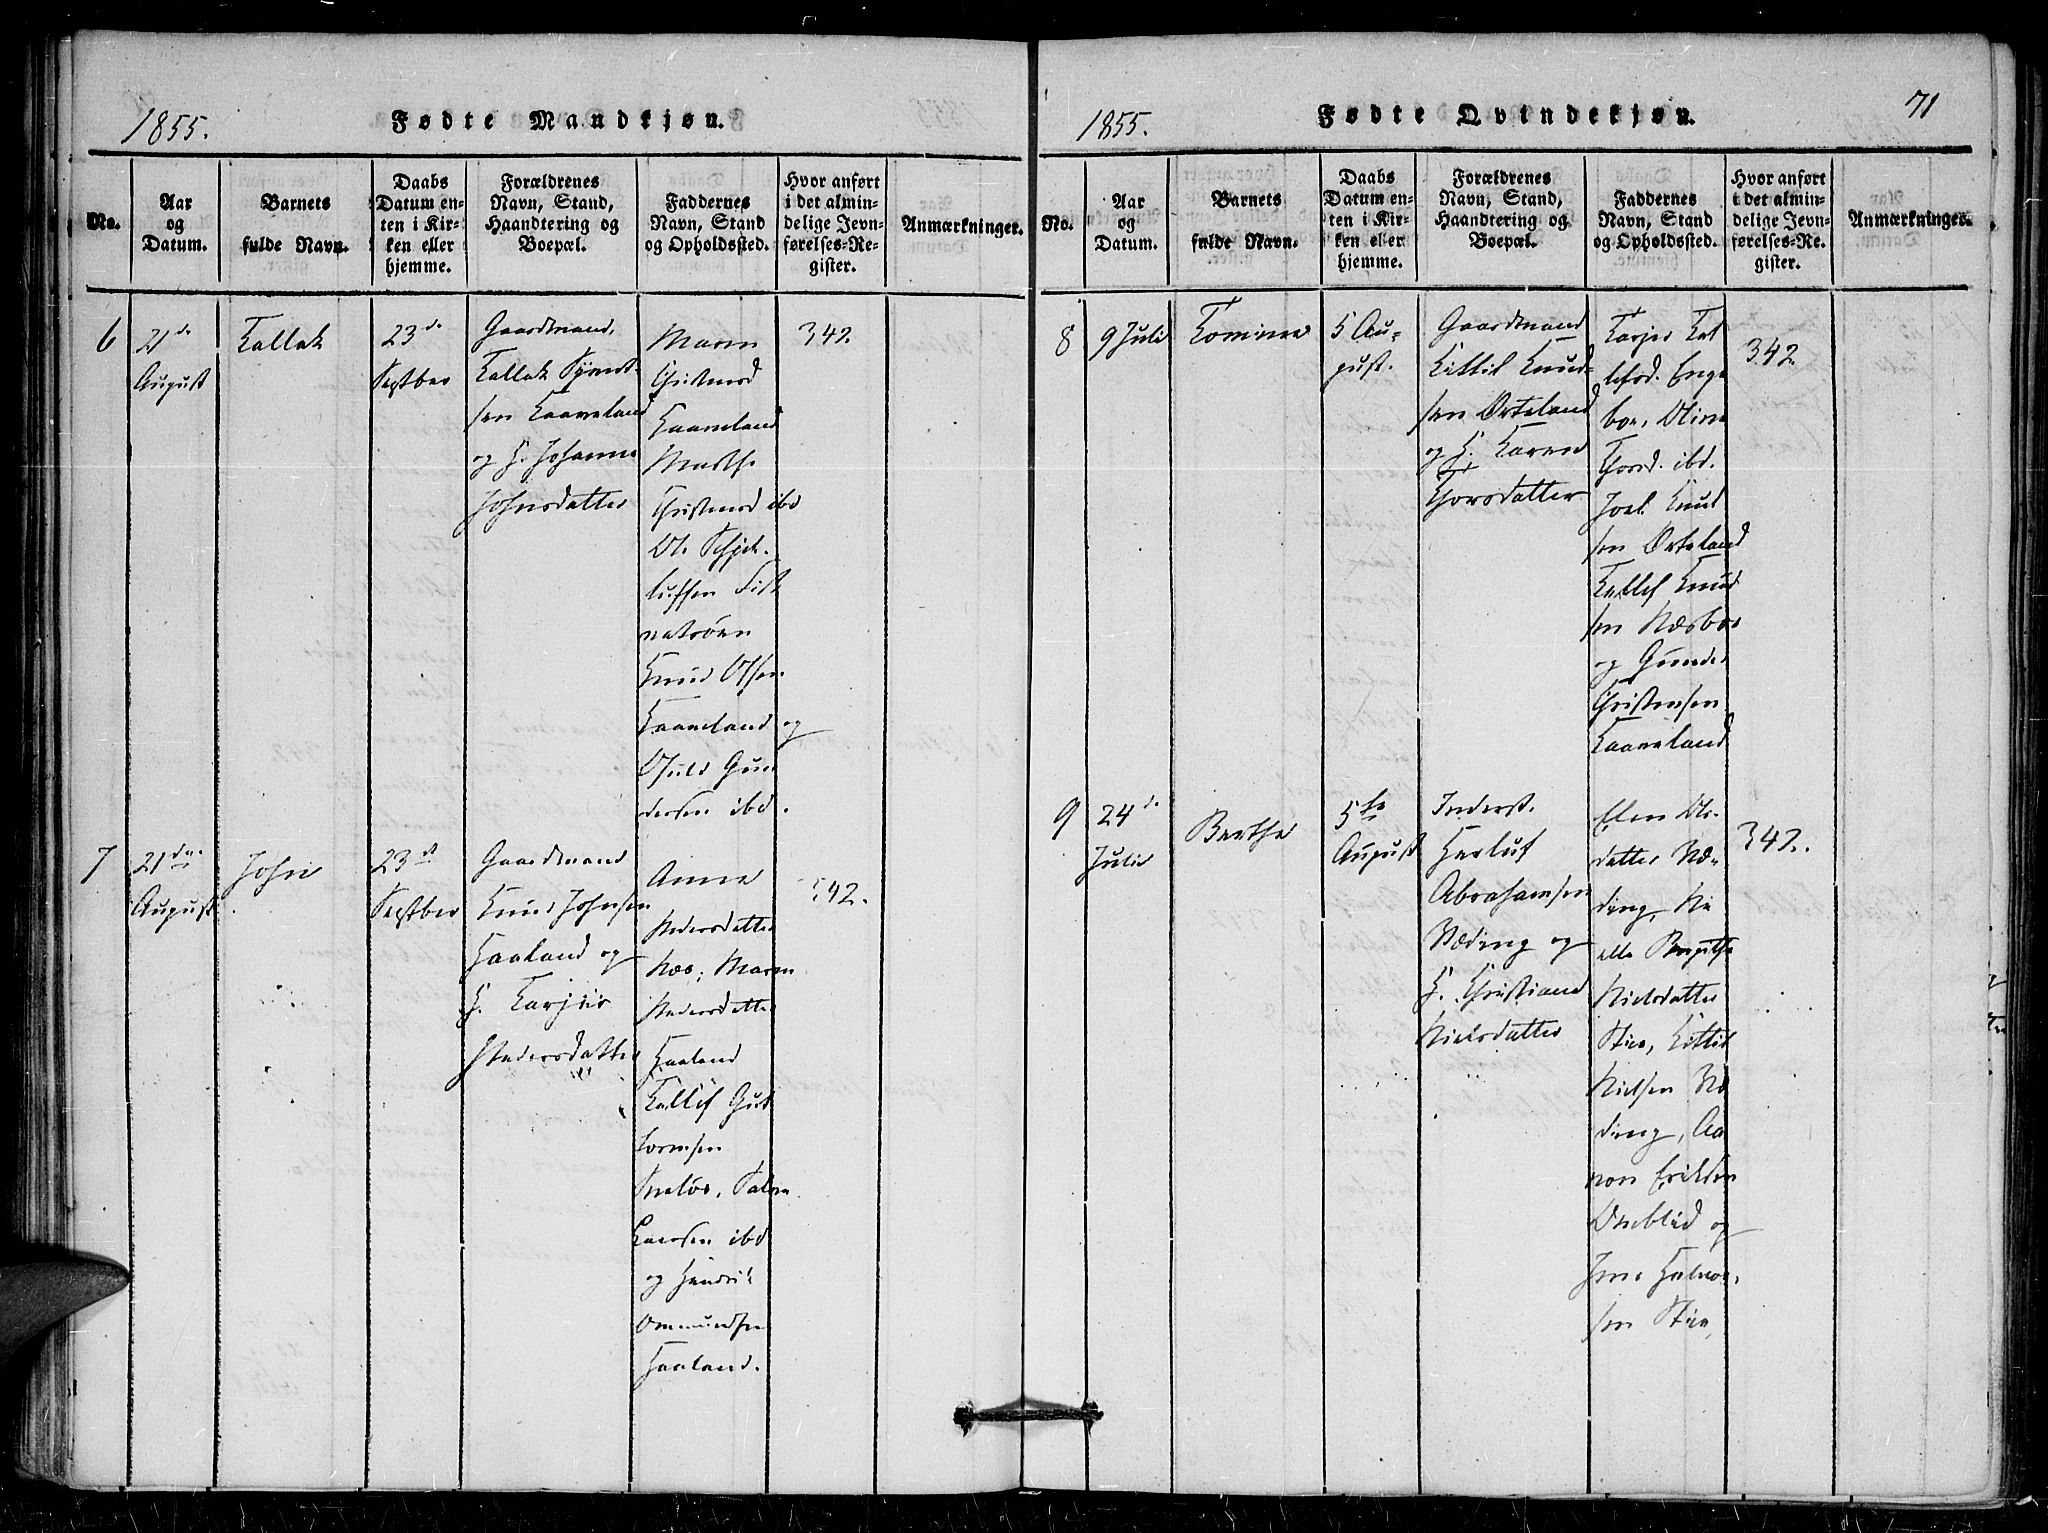 1855.
Fødte Mandkjøn.
No.
Aar
og
Datum.
Barnets
fulde Navn.
Daabs
Datum en-
ten i Kir-
ken eller
hjemme.
Forældrenes
Navn, Stand,
Haandtering og
Boepæl.
Faddernes
Navn, Stand
og Opholdssted.
Hvor anført
i det almin-
delige Jevn-
førelses-Re-
gister.
Anmærkninger.
6
21de
August
Tallak
23de
Septber
Gaardmand,
Tallak
sen Kaaveland
og H. Johanne
Johnsdatter
Maren
Christensd
Kaaveland
Marthe
Christensd ibd
Ole
Knud Olsen
Kaaveland og
Osuld Gun
dersen ibd.
342.
7
21de
August
John
23de
Septber
Gaardmand
Knud Johnsen
Haaland og
H. Tarjer
Pedersdatter
Anne
Pedersdatter
Næs, Maren
Pedersdatter
Haaland
Tallef Gut
tormsen
Larssen ibd
og Hendrik
Ommundsen
Haaland.
342.
1855.
Fødte Qvindekjøn.
71
No.
Aar
og
Datum.
Barnets
fulde Navn.
Daabs
Datum en-
ten i Kir-
ken eller
hjemme.
Forældrenes
Navn, Stand,
Haandtering og
Boepæl.
Faddernes
Navn, Stand
og Opholdssted.
Hvor anført
i det almin-
delige Jevn-
førelses-Re-
gister.
Anmærkninger.
8
9 Juli
Tomine
5 Au-
gust.
Gaardmand
Kittil Knud-
sen Ørteland
og H. Karen
Thorsdatter
Tarjer Tal
lefsd. Enge
boe, Oline
Thorsd. ibd.
Joel Knud
sen Ørteland
Tallef Knud
sen Næsboe
og Gunder
Christensen
Kaaveland
342.
9
24de
Juli
Berthe
5te
August
Inderst.
Herluf
Abrahamsen
Næding og
H. Christiane
Nielsdatter
Ellen Ols-
datter Næ-
ding,
Birgitte
Nielsdatter
Stie, Kittil
Nielsen Næ
ding, Aa
non Eriksen
og
Jens Halvor
sen Stie,
342.